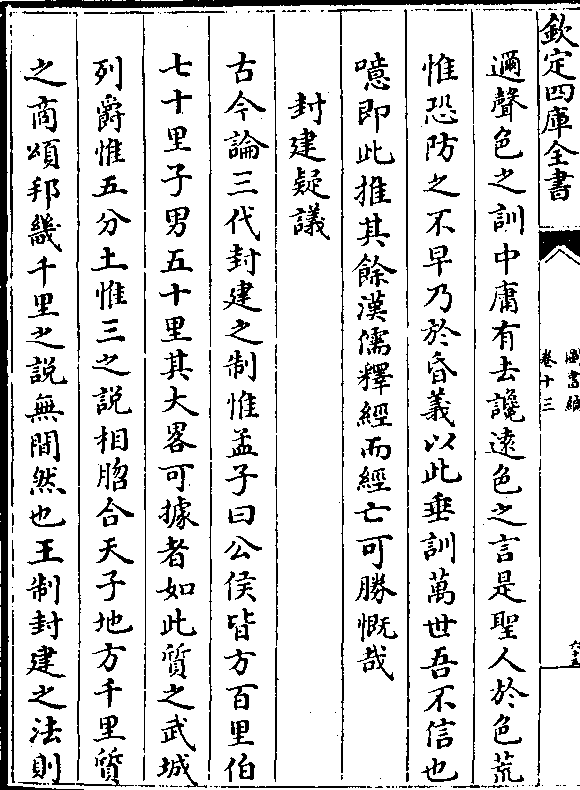 欽定四庫全書
圖書編
卷十三
六十五
邇聲色之訓中庸有去讒遠色之言是聖人於色荒
惟恐防之不早乃於昏義以此垂訓萬世吾不信也
噫即此推其餘漢儒釋經而經亡可勝慨哉
封建疑議
古今論三代封建之制惟孟子曰公侯皆方百里伯
七十里子男五十里其大畧可據者如此質之武城
列爵惟五分土惟三之說相脗合天子地方千里質
之商頌邦畿千里之說無間然也王制封建之法則